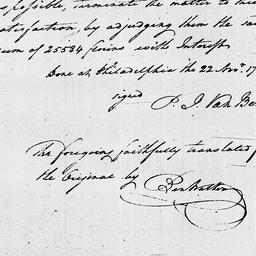 possible, terminate the matter to their
satisfaction, by adjudging them the sa
sum of 25534 florins with Interest
Done at Philadelphia the 22 Novr. 17
signed
P. J. Van Be
The foregoing faithfully translated f
the Original by